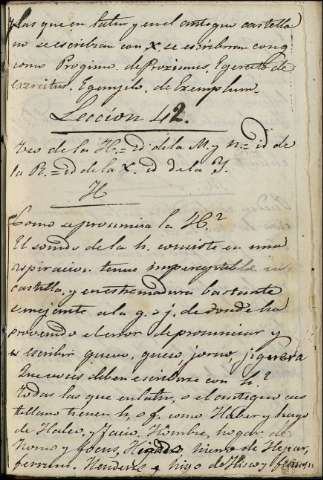 y las que en latin y en el antiguo castella
no se escribian con x se escribiran con g
como Progimo de Proximus, Egercito de
exercitus. Egemplo, de Exemplum.
Leccion 42.
Uso de la H.= id de la M. y n.= id de
la R.= id de la X. id de la Y.
H
Como se pronuncia la H?
El sonido de la h. consiste en una
aspiracion tenue imperceptible en
castilla, y en estremadura bastante
semejante a la g o j. de donde ha
provenido el error de pronunciar y
escribir
Que voces deben escribirse con h.?
todas las que en latin, o el antiguo cas
tellano tienen h, o f. como Haber y hago
de Habeo, y Facio, Hombre, hogar de
Homo y focus, Higado, hierro de Hepar,
ferrum, Henderse y hijo de